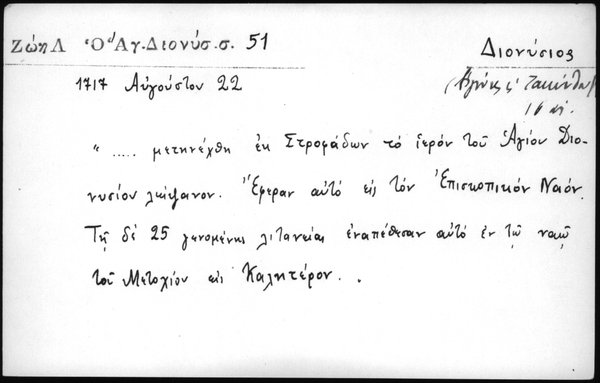 Ζώη Λ Ὁ Ἅγ. Διονύσ. σ. 51
Διονύσιος
1717 Αὐγούστου 22
16 αἰ.
"..... μετηνέχθη ἐκ Στροφάδων τὸ ἱερὸν τοῦ Ἁγίου Διο-
νυσίου λείψανον. Ἔφεραν αὐτὸ εἰς τὸν Ἐπισκοπικὸν Ναόν.
Τῇ δὲ 25 γενομένης λιτανείας ἐναπέθεσαν αὐτὸ ἐν τῷ ναῷ
τοῦ Μετοχίου εἰς Καλητέρον. .